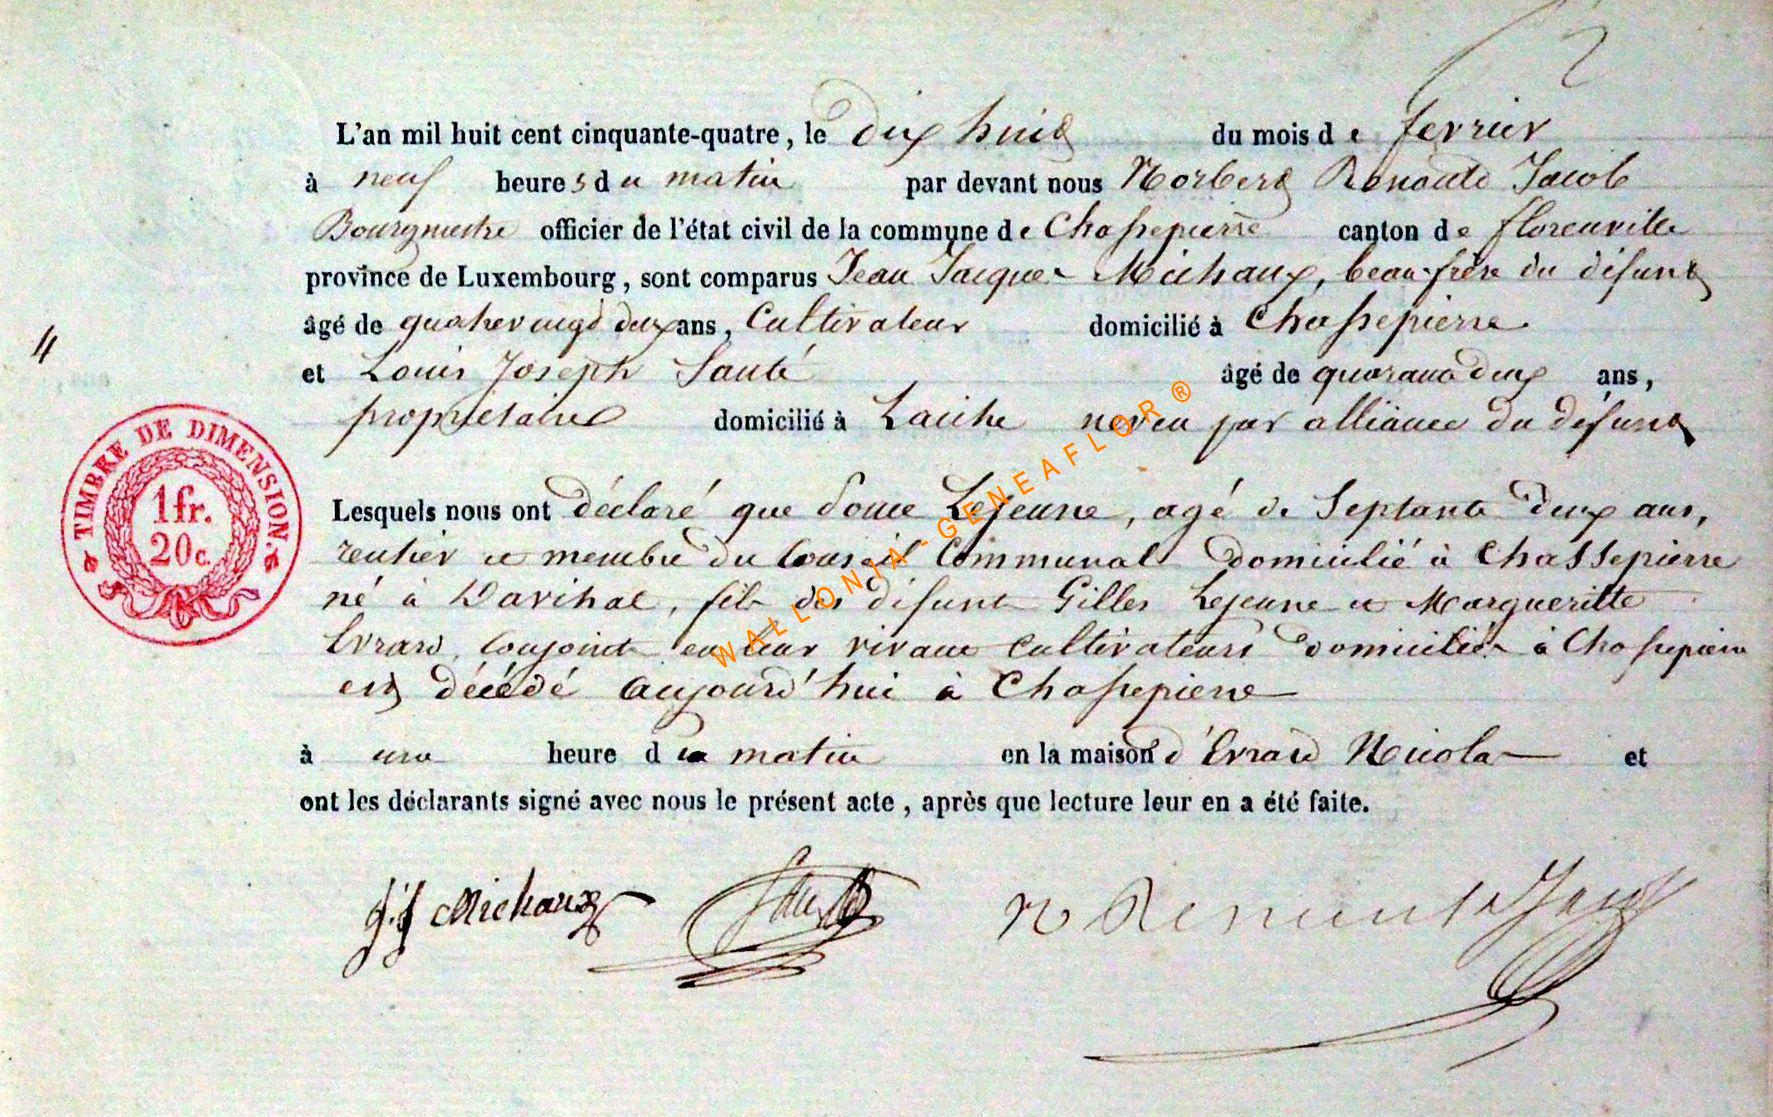 L'an mil huit cent cinquante-quatre, le dix huit du mois de fevrier
à neuf heures du matin par devant nous Norbert Renauld Jacob
Bourgmestre officier de l'état civil de la commune de Chassepierre canton de florenville
province de Luxembourg, sont comparus Jean Jacques Michaux, beau-frère du défunt
âgé de quatre vingt deux ans, Cultivateur domicilié à Chassepierre
4
et Louis Joseph Santé âgé de quarante deux ans,
propriétaire domicilié à Laiche neveu par alliance du défunt
TIMBRE DE DIMENSION.
1 fr.
20 c.
Lesquels nous ont déclaré que Lejeune, agé de Septante deux ans,
rentier et membre du Conseil Communal domicilié à Chassepierre
né à , fils des défunts Gilles Lejeune et Margueritte
Evrard, conjoints en leur vivant cultivateurs domiciliés à Chassepierre
est décédé aujourd'hui à Chassepierre
à une heure du matin en la maison d'Evrard Nicolas et
ont les déclarants signé avec nous le présent acte, après que lecture leur en a été faite.
J.J Michaux
WALLONIA-GENEAFLOR ®